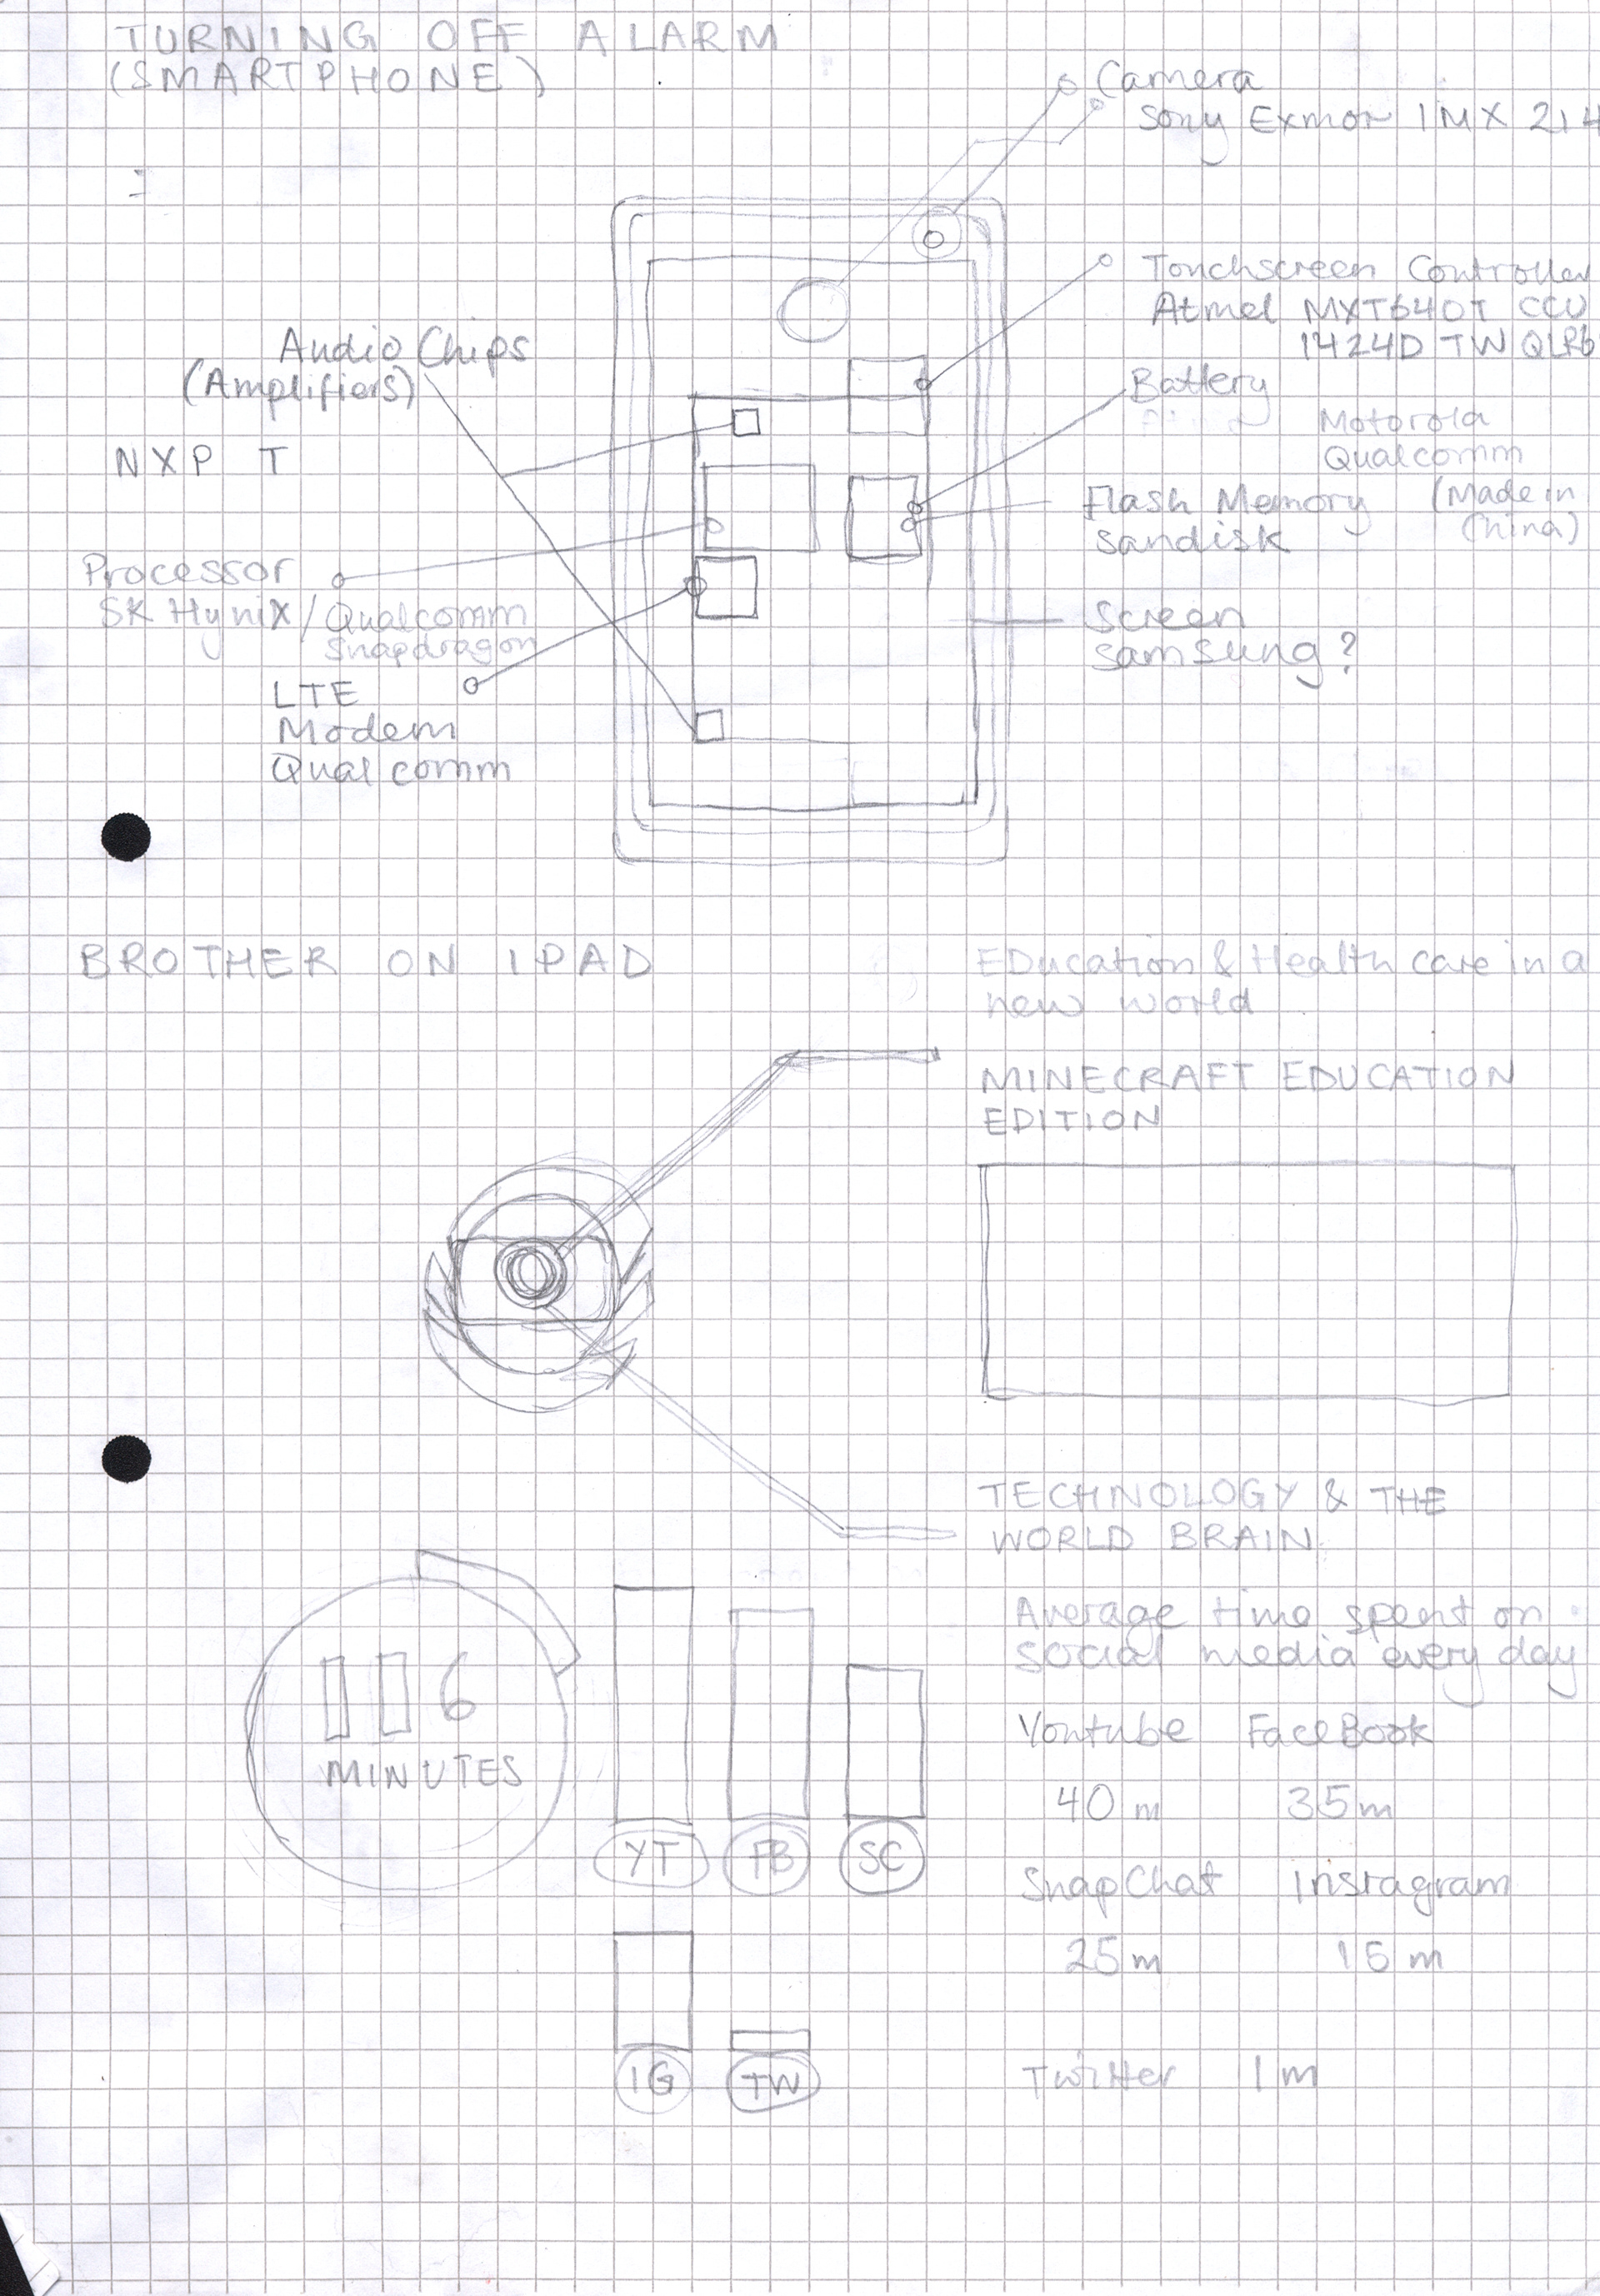 TURNING OFF ALARM
(SMARTPHONE)
Camera
Sony Exmor IMX 214
Touchscreen Controller
Atmel MXT640T CCU
1424D TW QLR6
Audio Chips
(Amplifiers)
NXP T
Battery
Motorola
Qualcomm
(Made in
China)
Flash Memory
Sandisk
Processor
SK Hynix/Qualcomm
Snapdragon
Screen
Samsung?
LTE
Modem
Qualcomm
BROTHER ON IPAD
EDucation & Health care in a
new world
MINECRAFT EDUCATION
EDITION
TECHNOLOGY & THE
WORLD BRAIN
116
MINUTES
YT FB SC
IG TW
Average time spent on
social media every day
Youtube FaceBook
40 m 35m
SnapChat Instagram
25m 15m
Twitter 1m